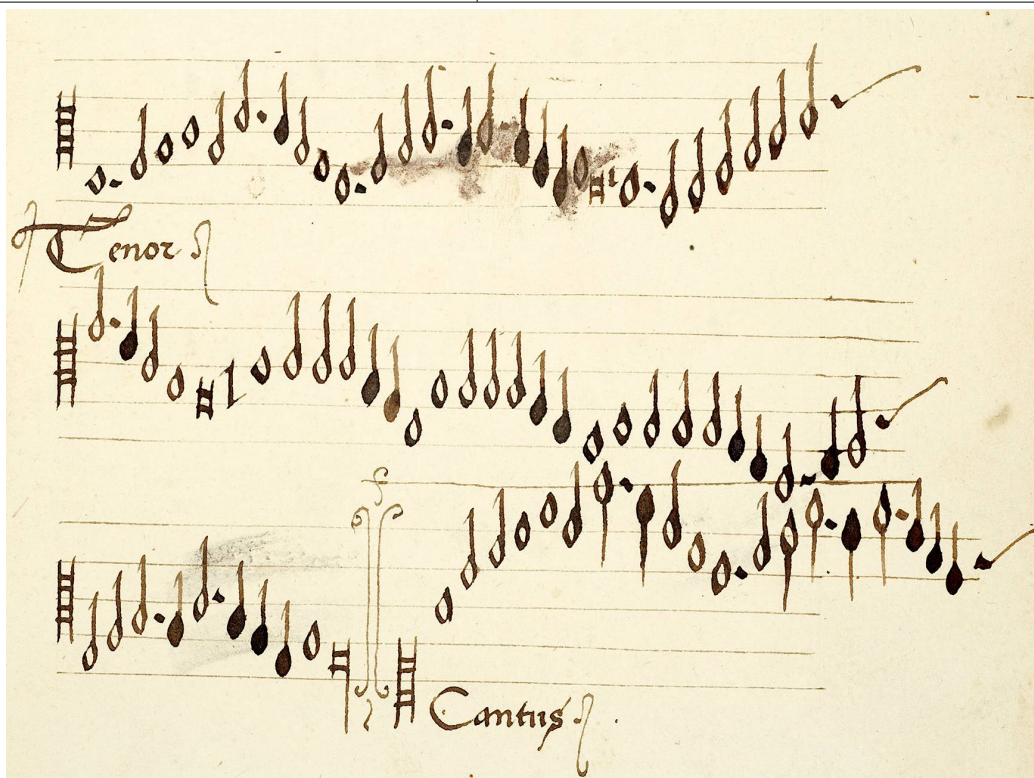 Tenor
Cantus